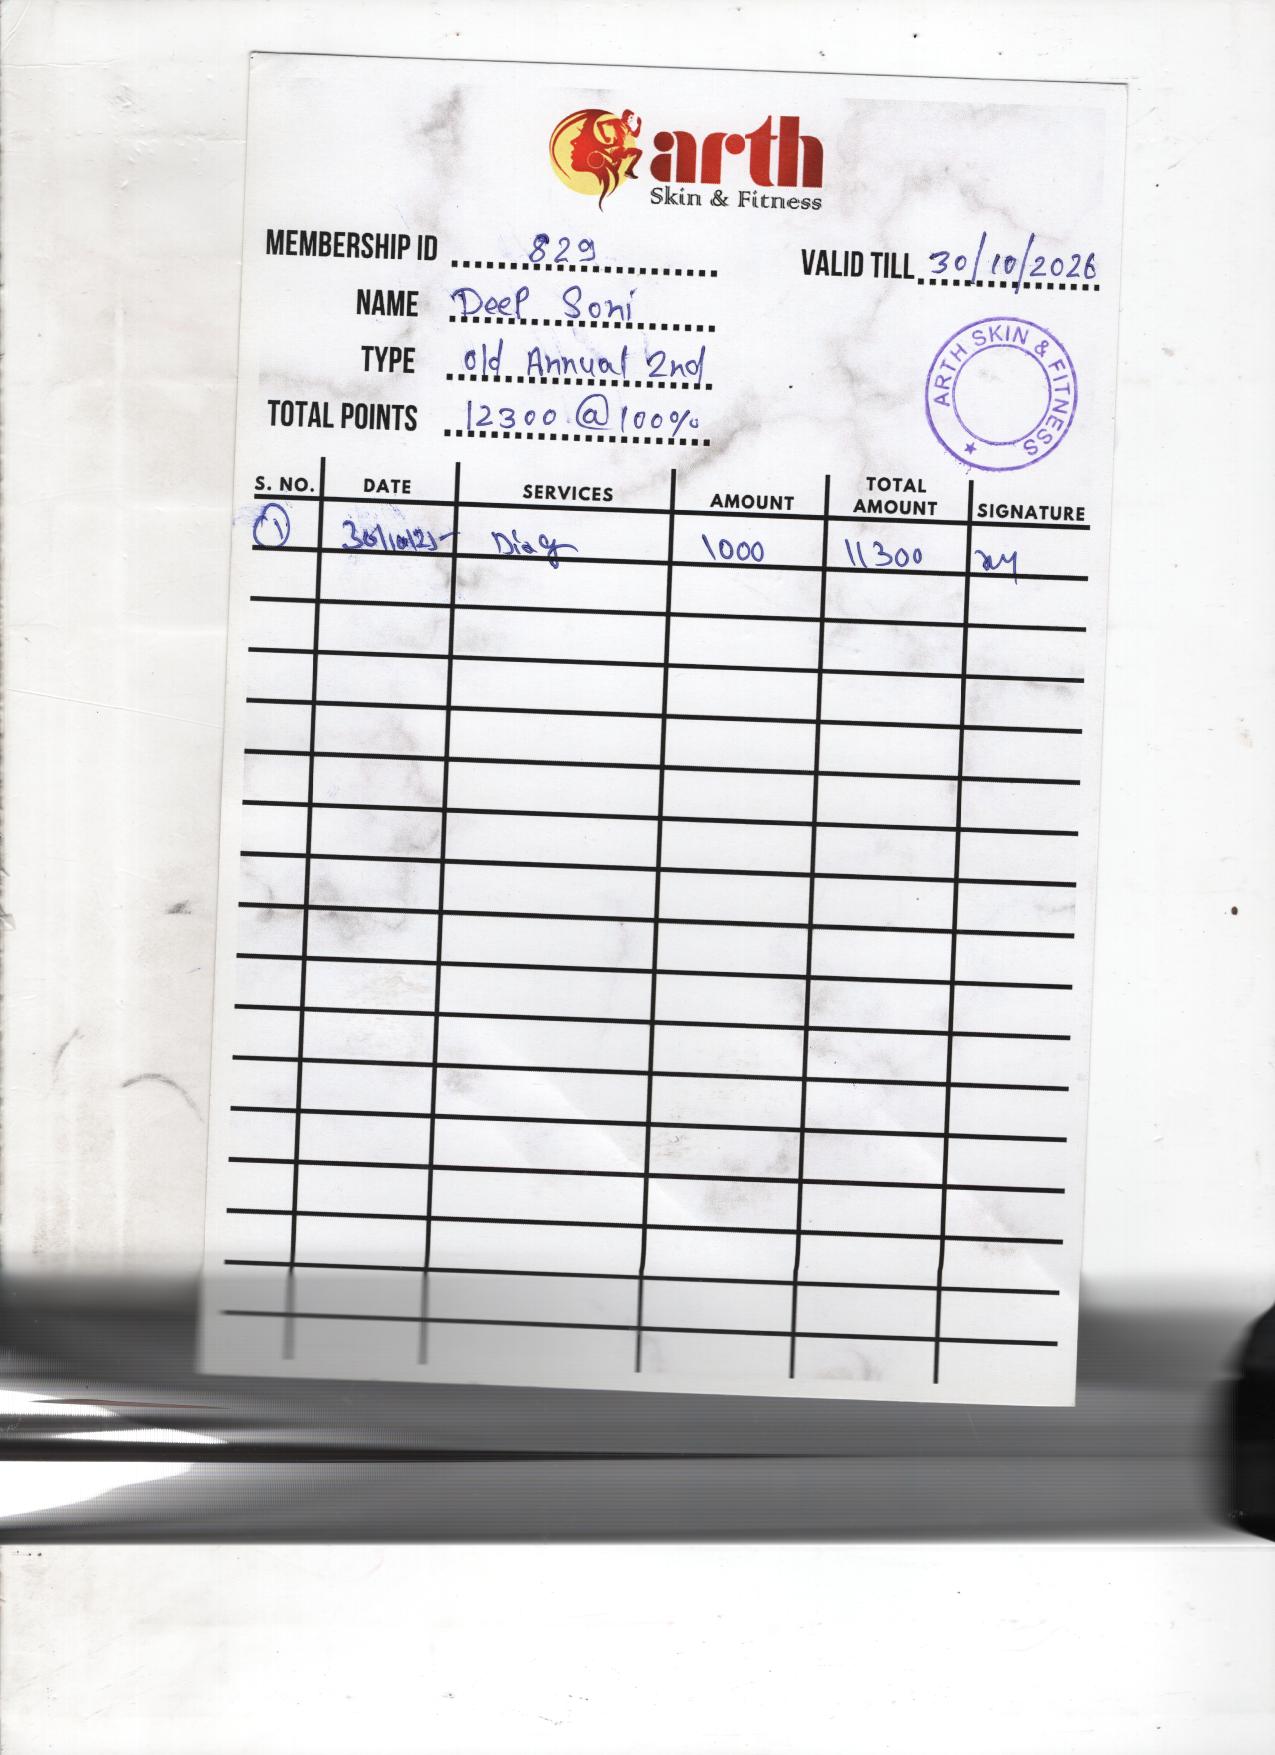 arth
Skin & Fitness
MEMBERSHIP ID 829
VALID TILL 30/10/2026
NAME Deep Soni
TYPE old Annual 2nd
TOTAL POINTS 12300 @ 100%
ARTH SKIN & FITNESS
S. NO. DATE SERVICES AMOUNT TOTAL AMOUNT SIGNATURE
1 30/10/25 Diag 1000 11300